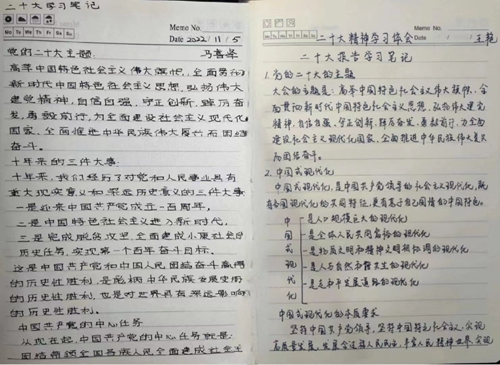 二十大学习笔记
Memo No.
Mo Tu We Th Fr Sa Su
Date 2022/11/5
党的二十大主题:
高举中国特色社会主义伟大旗帜,全面贯彻
新时代中国特色社会主义思想,弘扬伟大
建党精神,自信自强,守正创新,踔厉奋
发,勇毅前行,为全面建设社会主义现代化
国家、全面推进中华民族伟大复兴而团结
奋斗。
十年来的三件大事:
十年来,我们经历了对党和人民事业具有
重大现实意义和深远历史意义的三件大事
一是迎来中国共产党成立一百周年,
二是中国特色社会主义进入新时代,
三是完成脱贫攻坚,全面建成小康社会的
历史任务,实现第一个百年奋斗目标。
这是中国共产党和中国人民团结奋斗赢得
的历史性胜利,是彪炳中华民族发展史册
的历史性胜利,也是对世界具有深远影响
的历史性胜利。
中国共产党的中心任务
从现在起,中国共产党的中心任务就是:
团结带领全国各族人民全面建成社会主
二十大精神学习体会 王艳
Memo No.
Mo Tu We Th Fr Sa Su
Date
二十大报告学习笔记
1.党的二十大的主题
大会的主题是:高举中国特色社会主义伟大旗帜,全
面贯彻新时代中国特色社会主义思想,弘扬伟大建党
精神,自信自强、守正创新,踔厉奋发、勇毅前行,为全面
建设社会主义现代化国家、全面推进中华民族伟大复
兴而团结奋斗。
2.中国式现代化
中国式现代化,是中国共产党领导的社会主义现代化,既
有各国现代化的共同特征,更有基于自己国情的中国特色。
中 是人口规模巨大的现代化
国 是全体人民共同富裕的现代化
式 是物质文明和精神文明相协调的现代化
现 是人与自然和谐共生的现代化
代 是走和平发展道路的现代化
化
中国式现代化的本质要求
坚持中国共产党领导,坚持中国特色社会主义,实现
高质量发展,发展全过程人民民主,丰富人民精神世界,实现